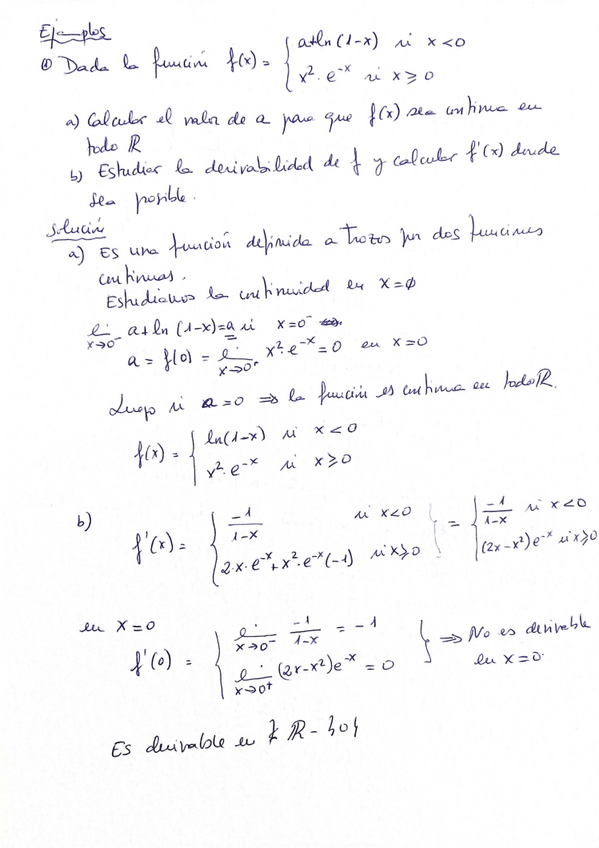 Ejemplos
① Dada la función f(x) = { a+ln(1-x) si x<0
x²·e^-x si x≥0
a) Calcular el valor de a para que f(x) sea continua en
todo ℝ
b) Estudiar la derivabilidad de f y calcular f'(x) donde
sea posible.
Solución
a) Es una función definida a trozos por dos funciones
continuas.
Estudiamos la continuidad en x=0
lim x→0⁻ a+ln(1-x)=a si x=0⁻
a = f(0) = lim x→0⁺ x²·e^-x = 0 en x=0
Luego si a=0 ⇒ la función es continua en todo ℝ.
f(x) = { ln(1-x) si x<0
x²·e^-x si x≥0
b) f'(x) = { -1/(1-x) si x<0 } = { -1/(1-x) si x<0
2·x·e^-x+x²·e^-x(-1) si x≥0 (2x-x²)e^-x si x≥0
en x=0
f'(0) = { lim x→0⁻ -1/(1-x) = -1 } ⇒ No es derivable
lim x→0⁺ (2x-x²)e^-x = 0 en x=0.
Es derivable en ℝ-{0}